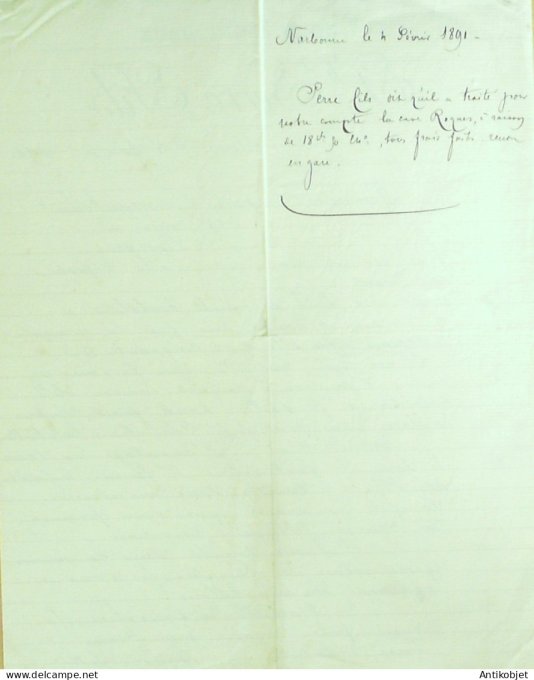 Narbonne le 4 Février 1891 -
Perre fils dit qu'il a traité pour
notre compte la cave Roques, à raison
de 18 , tous frais faits rendu
en gare.
Antikobjet